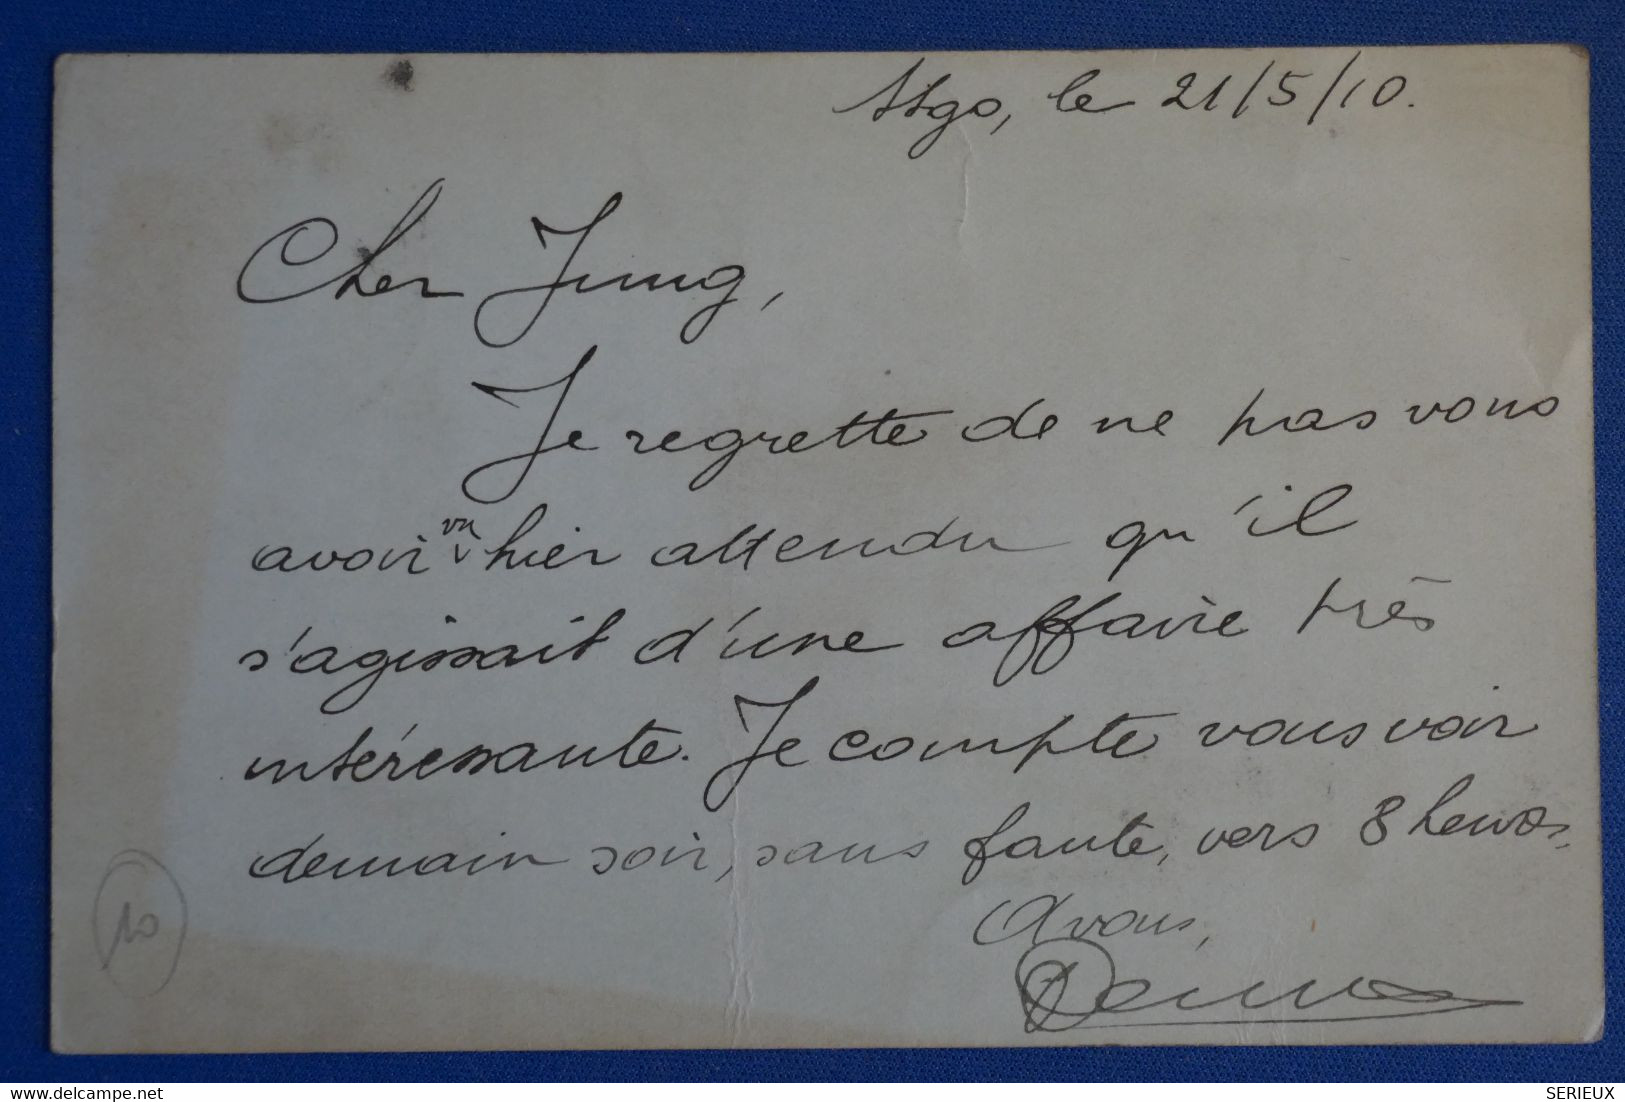 Stgo, le 21/5/10.
Cher Jung,
Je regrette de ne pas vous
avoir vu hier attendu qu'il
s'agissait d'une affaire très
intéressante. Je compte vous voir
demain soir, sans faute, vers 8 heures.
A vous,
10
www.delcampe.net
SERIEUX